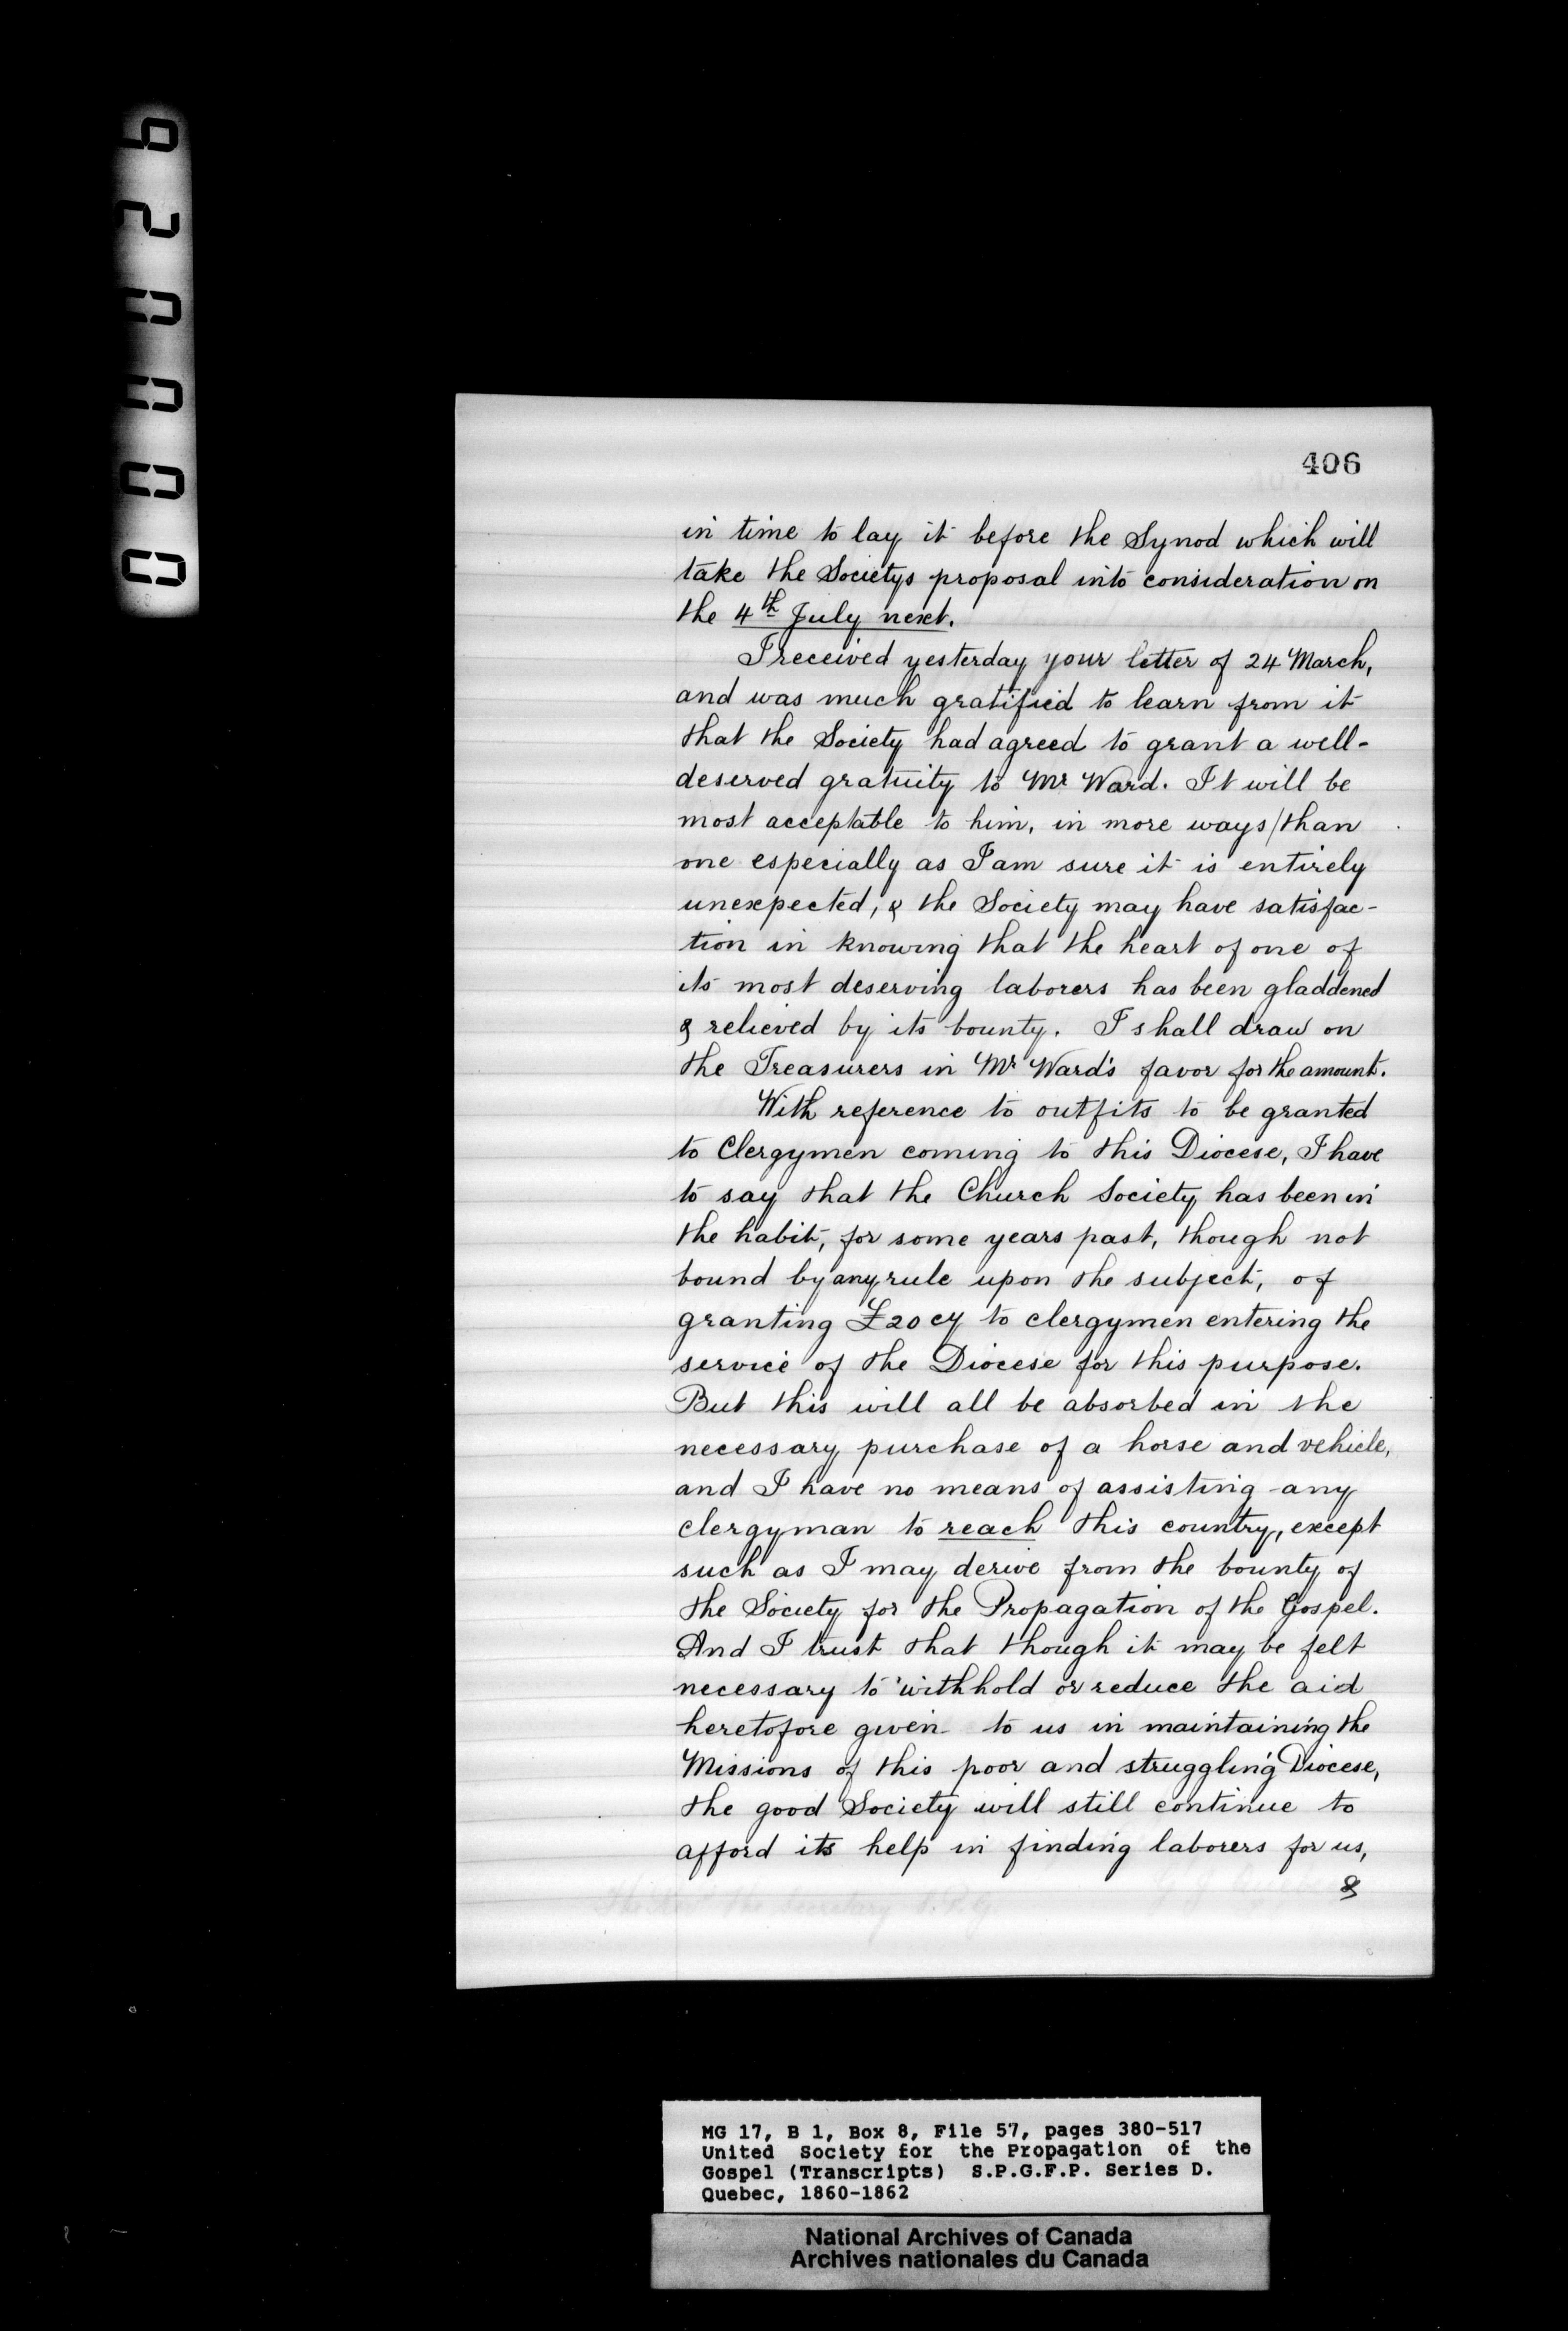 000029
406
in time to lay it before the Synod which will
take the Societys proposal into consideration on
the 4th July next.
I received yesterday your letter of 24 March,
and was much gratified to learn from it
that the Society had agreed to grant a well-
deserved gratuity to Mr Ward. It will be
most acceptable to him, in more ways/than
one especially as I am sure it is entirely
unexpected, & the Society may have satisfac-
tion in knowing that the heart of one of
its most deserving laborers has been gladdened
& relieved by its bounty. I shall draw on
the Treasurers in Mr Ward's favor for the amount.
With reference to outfits to be granted
to Clergymen coming to this Diocese, I have
to say that the Church Society has been in
the habit, for some years past, though not
bound by any rule upon the subject, of
granting £20 cy to clergymen entering the
service of the Diocese for this purpose.
But this will all be absorbed in the
necessary purchase of a horse and vehicle,
and I have no means of assisting any
clergyman to reach this country, except
such as I may derive from the bounty of
the Society for the Propagation of the Gospel.
And I trust that though it may be felt
necessary to withhold or reduce the aid
heretofore given to us in maintaining the
Missions of this poor and struggling Diocese,
the good Society will still continue to
afford its help in finding laborers for us,
&
MG 17, B 1, Box 8, File 57, pages 380-517
United Society for the Propagation of the
Gospel (Transcripts) S.P.G.F.P. Series D.
Quebec, 1860-1862
National Archives of Canada
Archives nationales du Canada